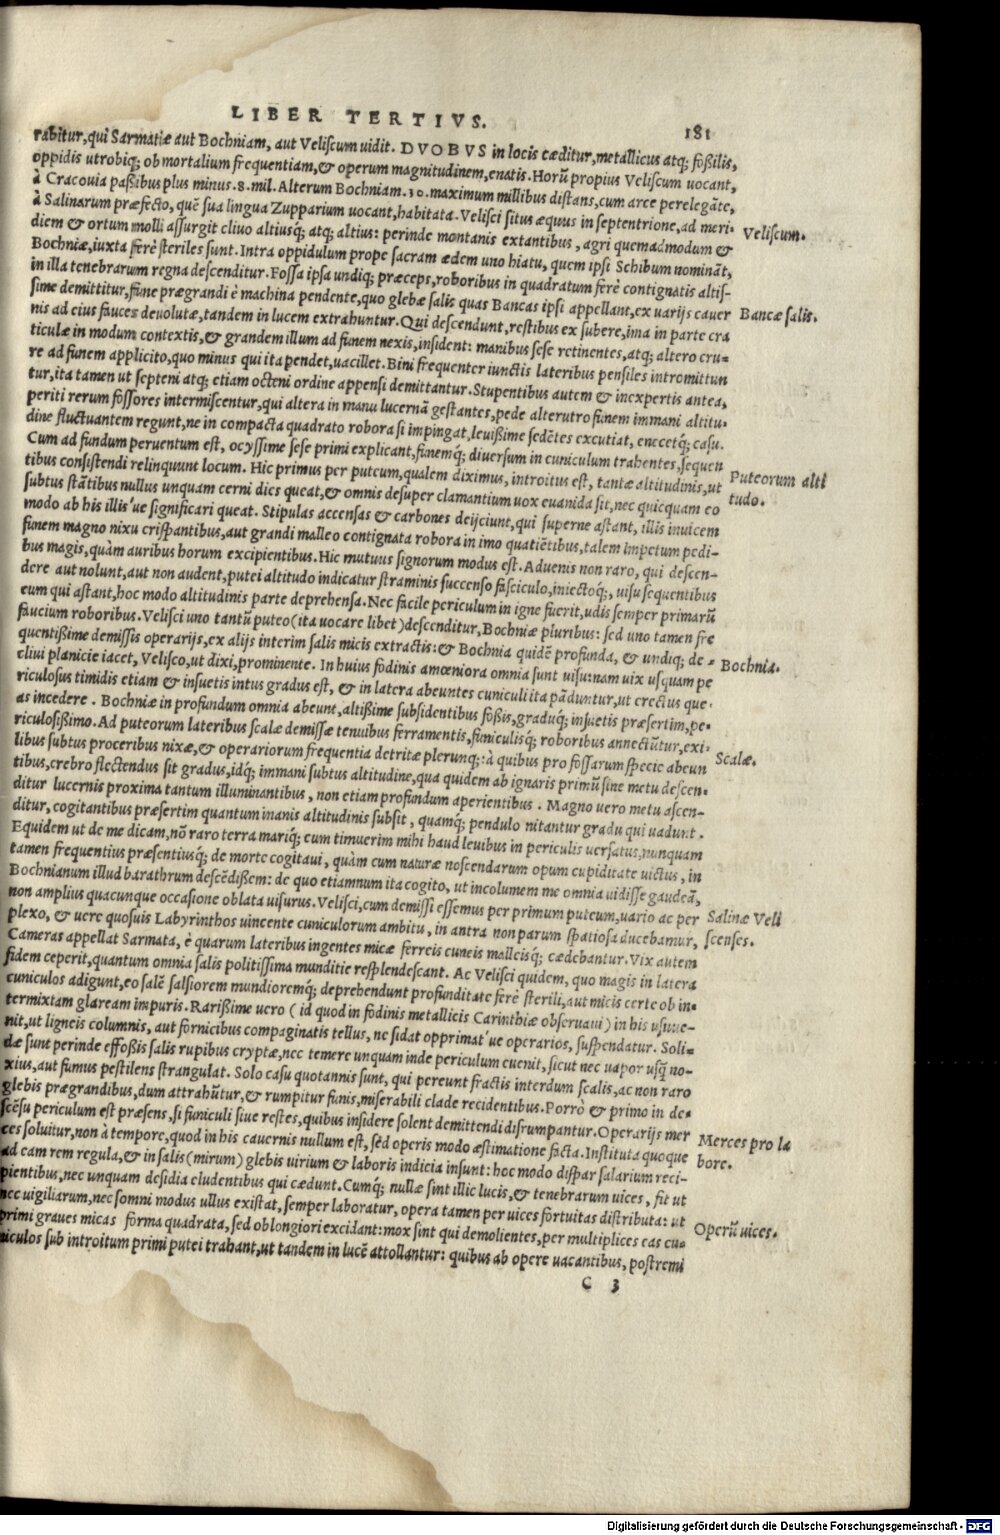 LIBER TERTIVS.
181
rabitur, qui Sarmatiæ aut Bochniam, aut Veliſcum uidit. DVOBVS in locis cæditur, metallicus atq; foßilis,
oppidis utrobiq; ob mortalium frequentiam, & operum magnitudinem, enatis. Horũ propius Veliſcum uocant,
à Cracouia paßibus plus minus .8. mil. Alterum Bochniam .30. maximum millibus diſtans, cum arce perelegãte,
à Salinarum præfecto, quẽ ſua lingua Zupparium uocant, habitata. Veliſci ſitus æquus in ſeptentrione, ad meri-
diem & ortum molli aſſurgit cliuo altiusq; atq; altius: perinde montanis extantibus, agri quemadmodum &
Bochniæ, iuxta ferè ſteriles ſunt. Intra oppidulum prope ſacram ædem uno hiatu, quem ipſi Schibum nominãt,
in illa tenebrarum regna deſcenditur. Foſſa ipſa undiq; præceps, roboribus in quadratum ferè contignatis altiſ-
ſime demittitur, fune prægrandi è machina pendente, quo glebæ ſalis quas Bancas ipſi appellant, ex uarijs cauer
nis ad eius fauces deuolutæ, tandem in lucem extrahuntur. Qui deſcendunt, reſtibus ex ſubere, ima in parte cra
ticulæ in modum contextis, & grandem illum ad funem nexis, inſident: manibus ſeſe retinentes, atq; altero cru-
re ad funem applicito, quo minus qui ita pendet, uacillet. Bini frequenter iunctis lateribus penſiles intromittun
tur, ita tamen ut ſepteni atq; etiam octeni ordine appenſi demittantur. Stupentibus autem & inexpertis antea,
periti rerum foſſores intermiſcentur, qui altera in manu lucernã geſtantes, pede alterutro funem immani altitu-
dine fluctuantem regunt, ne in compacta quadrato robora ſi impingat, leuißime ſedẽtes excutiat, enecetq; caſu.
Cum ad fundum peruentum eſt, ocyſſime ſeſe primi explicant, funemq; diuerſum in cuniculum trahentes, ſequen
tibus conſiſtendi relinquunt locum. Hic primus per puteum, qualem diximus, introitus eſt, tantæ altitudinis, ut
ſubtus ſtãtibus nullus unquam cerni dies queat, & omnis deſuper clamantium uox euanida ſit, nec quicquam eo
modo ab his illis'ue ſignificari queat. Stipulas accenſas & carbones deijciunt, qui ſuperne aſtant, illis inuicem
funem magno nixu criſpantibus, aut grandi malleo contignata robora in imo quatiẽtibus, talem impetum pedi-
bus magis, quàm auribus horum excipientibus. Hic mutuus ſignorum modus eſt. Aduenis non raro, qui deſcen-
dere aut nolunt, aut non audent, putei altitudo indicatur ſtraminis ſuccenſo faſciculo, iniectoq;, uiſu ſequentibus
eum qui aſtant, hoc modo altitudinis parte deprehenſa. Nec facile periculum in igne fuerit, udis ſemper primarũ
faucium roboribus. Veliſci uno tantũ puteo (ita uocare libet) deſcenditur, Bochniæ pluribus: ſed uno tamen fre
quentißime demiſſis operarijs, ex alijs interim ſalis micis extractis: & Bochnia quidẽ profunda, & undiq; de-
cliui planicie iacet, Veliſco, ut dixi, prominente. In huius fodinis amœniora omnia ſunt uiſu: nam uix uſquam pe
riculoſus timidis etiam & inſuetis intus gradus eſt, & in latera abeuntes cuniculi ita pãduntur, ut erectius que-
as incedere. Bochniæ in profundum omnia abeunt, altißime ſubſidentibus foßis, graduq; inſuetis præſertim, pe-
riculoſißimo. Ad puteorum lateribus ſcalæ demiſſæ tenuibus ferramentis, funiculisq; roboribus annectiũtur, exi-
libus ſubtus proceribus nixæ, & operariorum frequentia detritæ plerunq; : à quibus pro foſſarum ſpecie abeun
tibus, crebro flectendus ſit gradus, idq; immani ſubtus altitudine, qua quidem ab ignaris primũ ſine metu deſcen-
ditur lucernis proxima tantum illuminantibus, non etiam profundum aperientibus. Magno uero metu aſcen-
ditur, cogitantibus præſertim quantum inanis altitudinis ſubſit, quamq; pendulo nitantur gradu qui uadunt.
Equidem ut de me dicam, nõ raro terra mariq; cum timuerim mihi haud leuibus in periculis uerſatus, nunquam
tamen frequentius præſentiusq; de morte cogitaui, quàm cum naturæ noſcendarum opum cupiditate uictus, in
Bochnianum illud barathrum deſcẽdiſſem: de quo etiamnum ita cogito, ut incolumem me omnia uidiſſe gaudeã,
non amplius quacunque occaſione oblata uiſurus. Veliſci, cum demiſſi eſſemus per primum puteum, uario ac per
plexo, & uere quoſuis Labyrinthos uincente cuniculorum ambitu, in antra non parum ſpatioſa ducebamur,
Cameras appellat Sarmata, è quarum lateribus ingentes micæ ferreis cuneis malleisq; cædebantur. Vix autem
fidem ceperit, quantum omnia ſalis politiſſima munditie reſplendeſcant. Ac Veliſci quidem, quo magis in latera
cuniculos adigunt, eo ſalẽ ſalſiorem mundioremq; deprehendunt profunditate ferè ſterili, aut micis certe ob in-
termixtam glaream impuris. Rarißime uero (id quod in fodinis metallicis Carinthiæ obſeruaui) in his uſuue-
nit, ut ligneis columnis, aut fornicibus compaginatis tellus, ne ſidat opprimat'ue operarios, ſuſpendatur. Soli-
dæ ſunt perinde effoßis ſalis rupibus cryptæ, nec temere unquam inde periculum euenit, ſicut nec uapor uſq̃ no-
xius, aut fumus peſtilens ſtrangulat. Solo caſu quotannis ſunt, qui pereunt fractis interdum ſcalis, ac non raro
glebis prægrandibus, dum attrahũtur, & rumpitur funis, miſerabili clade recidentibus. Porrò & primo in de-
ſcẽſu periculum eſt præſens, ſi funiculi ſiue reſtes, quibus inſidere ſolent demittendi diſrumpantur. Operarijs mer
ces ſoluitur, non à tempore, quod in his cauernis nullum eſt, ſed operis modo æſtimatione facta. Inſtituta quoque
ad eam rem regula, & in ſalis (mirum) glebis uirium & laboris indicia inſunt: hoc modo diſpar ſalarium reci-
pientibus, nec unquam deſidia eludentibus qui cædunt. Cumq; nullæ ſint illic lucis, & tenebrarum uices, fit ut
nec uigiliarum, nec ſomni modus ullus exiſtat, ſemper laboratur, opera tamen per uices fortuitas diſtributa: ut
primi graues micas forma quadrata, ſed oblongiori excidant: mox ſint qui demolientes, per multiplices eas cu-
niculos ſub introitum primi putei trahant, ut tandem in lucẽ attollantur: quibus ab opere uacantibus, poſtremi
C 3
Veliſcum.
Bancæ ſalis.
Puteorum alti
tudo.
Bochnia.
Scalæ.
Salinæ Veli
ſcenſes.
Merces pro la
bore.
Operũ uices.
Digitalisierung gefördert durch die Deutsche Forschungsgemeinschaft - DFG